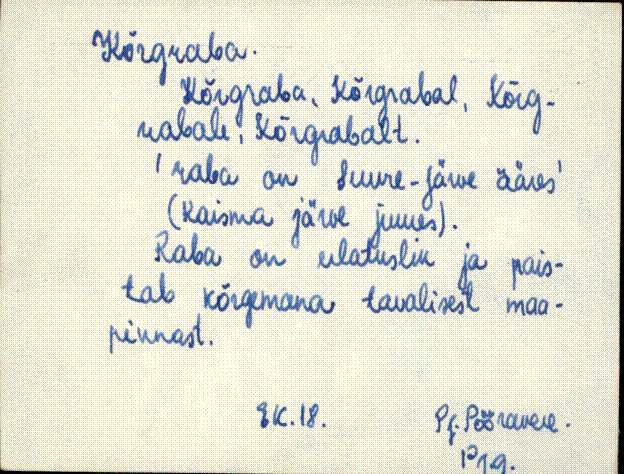 Kõrgraba.
Kõrgraba, Kõrgrabal, Kõrg-
rabale, Kõrgrabalt.
'raba on Suure-Järve ääres'
(Kaisma järve juures).
Raba on ulatuslik ja pais-
tab kõrgemana tavalisest maa-
pinnast.
EK. 18.
Pj. Pööravere.
P19.